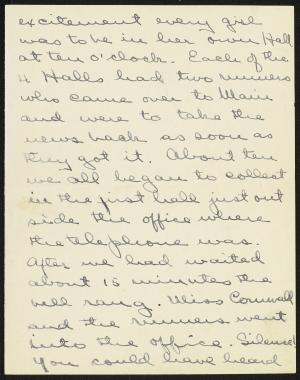 excitement every girl
was to be in her own Hall
at ten o'clock. Each of the
4 Halls had two runners
who came over to Main
and were to take the
news back as soon as
they got it. About ten
we all began to collect
in the first hall just out
side the office where
the telephone was.
After we had waited
about 15 minutes the
bell rang. Miss Cornwall
and the runners went
into the office. Silence!
You could have heard